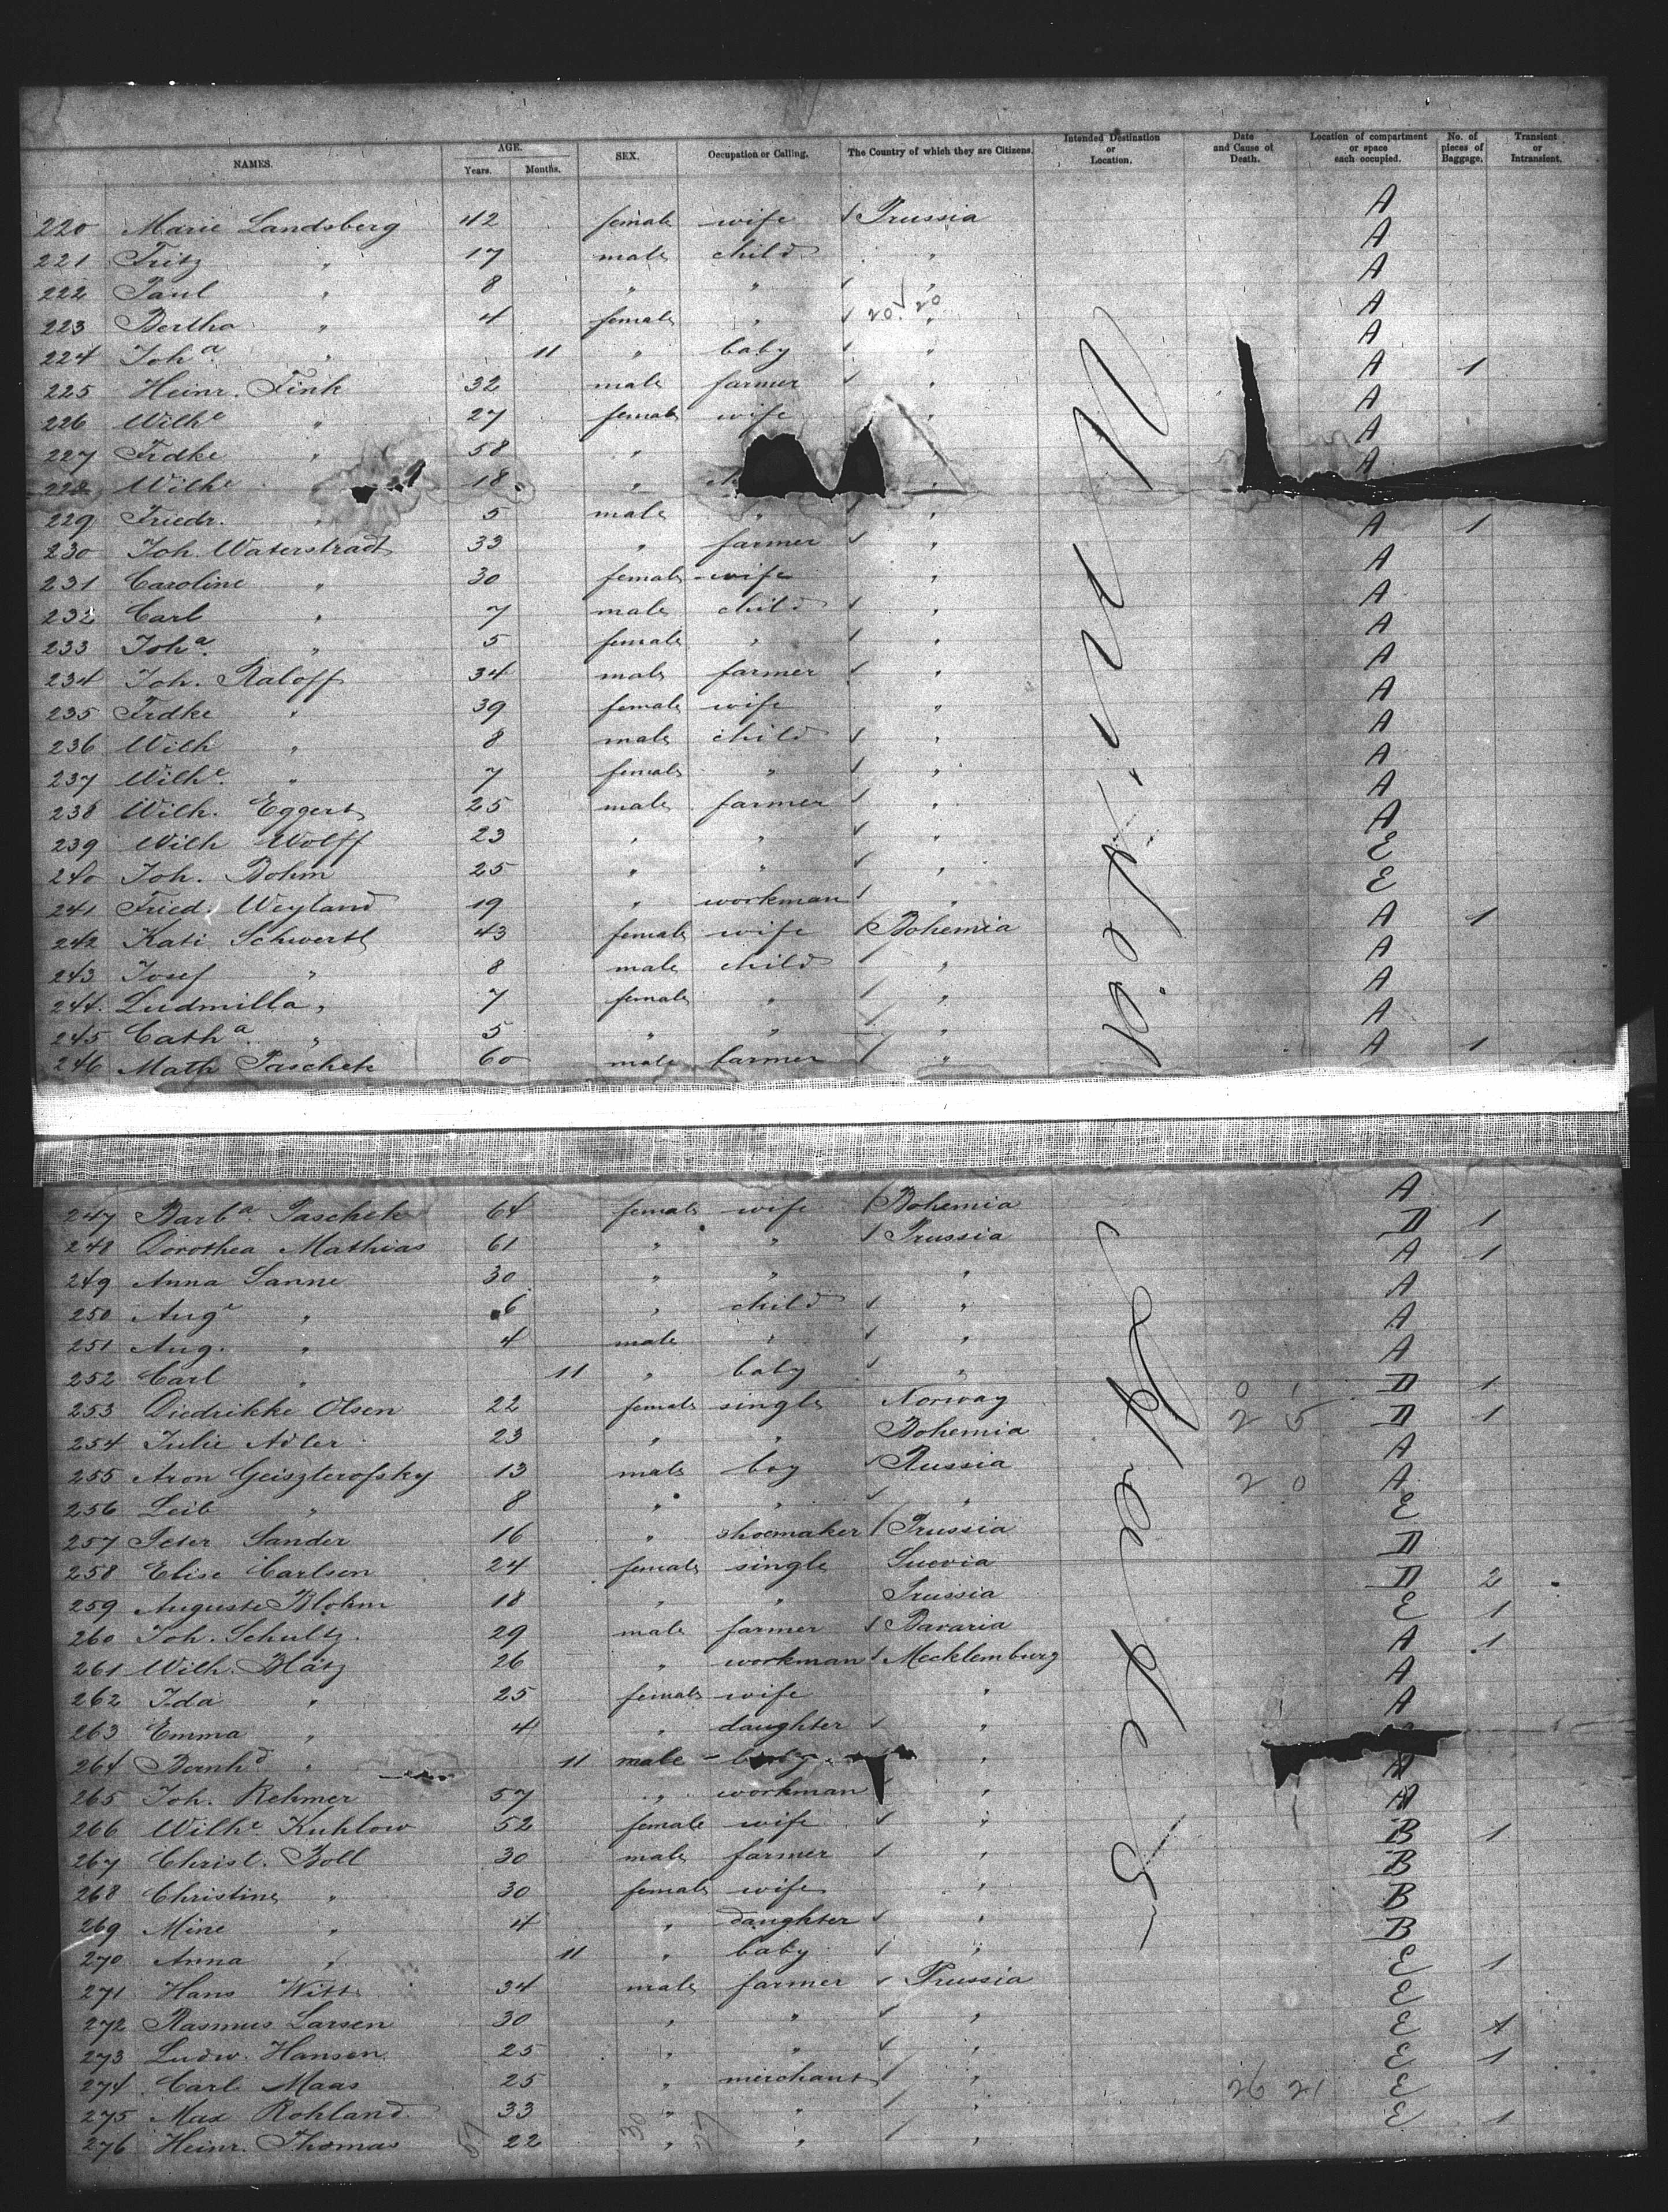 NAMES. AGE. Years. Months. SEX. Occupation or Calling. The Country of which they are Citizens. Intended Destination or Location. Date and Cause of Death. Location of compartment or space each occupied. No. of pieces of Baggage. Transient or Intransient.
220 Marie Landsberg 42 female wife Prussia A
221 Fritz " 17 male child " A
222 Paul " 8 " " " A
223 Bertha " 4 female " " A
224 Joh.a " 11 " baby " A
225 Heinr. Fink 32 male farmer " A 1
226 Wilh.e " 27 female wife " A
227 Frdke " 58 " A
228 Wilh.e 18 " " A
229 Friedr. " 5 male " "
230 Joh. Waterstradt 33 " farmer " A 1
231 Caroline " 30 female wife " A
232 Carl " 7 male child " A
233 Joh.a " 5 female " " A
234 Joh. Raloff 34 male farmer " A
235 Frdke " 39 female wife " A
236 Wilh " 8 male child " A
237 Wilh.e " 7 female " " A
238 Wilh. Eggert 25 male farmer " A
239 Wilh Wolff 23 " " " A
240 Joh. Bohm 25 " " " E
241 Fried. Weyland 19 " workman " E
242 Kati Schwertl 43 female wife Bohemia A 1
243 Josef " 8 male child " A
244 Ludmilla " 7 female " " A
245 Cath.a " 5 " " " A
246 Math Paschek 60 male farmer " A 1
247 Barb.a Paschek 64 female wife Bohemia A
248 Dorothea Mathias 61 " " Prussia D 1
249 Anna Sanne 30 " " " A 1
250 Aug.e " 6 " child " A
251 Aug. " 4 male " " A
252 Carl " 11 " baby " A
253 Diedrikke Olsen 22 female single Norway D 1
254 Julie Adler 23 " " Bohemia D 1
255 Aron Geiszterofsky 13 male boy Russia A
256 Leib " 8 " " " A
257 Peter Sander 16 " shoemaker Prussia E
258 Elise Carlsen 24 female single Suevia D
259 Auguste Blohm 18 " " Prussia D 2
260 Joh. Schultz 29 male farmer Bavaria E 1
261 Wilh. Blatz 26 " workman Mecklemburg A 1
262 Ida " 25 female wife " A
263 Emma " 4 " daughter " A
264 Bernh.d " 11 male baby "
265 Joh. Rehmer 57 " workman " A
266 Wilh.e Kuhlow 52 female wife " A
267 Christ. Boll 30 male farmer " B 1
268 Christine " 30 female wife " B
269 Mine " 4 " daughter " B
270 Anna " 11 " baby " B
271 Hans Witt 34 male farmer Prussia E 1
272 Rasmus Larsen 30 " " " E
273 Ludw. Hansen 25 " " " E 1
274 Carl Maas 25 " merchant " E 1
275 Max Rohland 33 " " " 26 21 E
276 Heinr. Thomas 22 " " " E 1